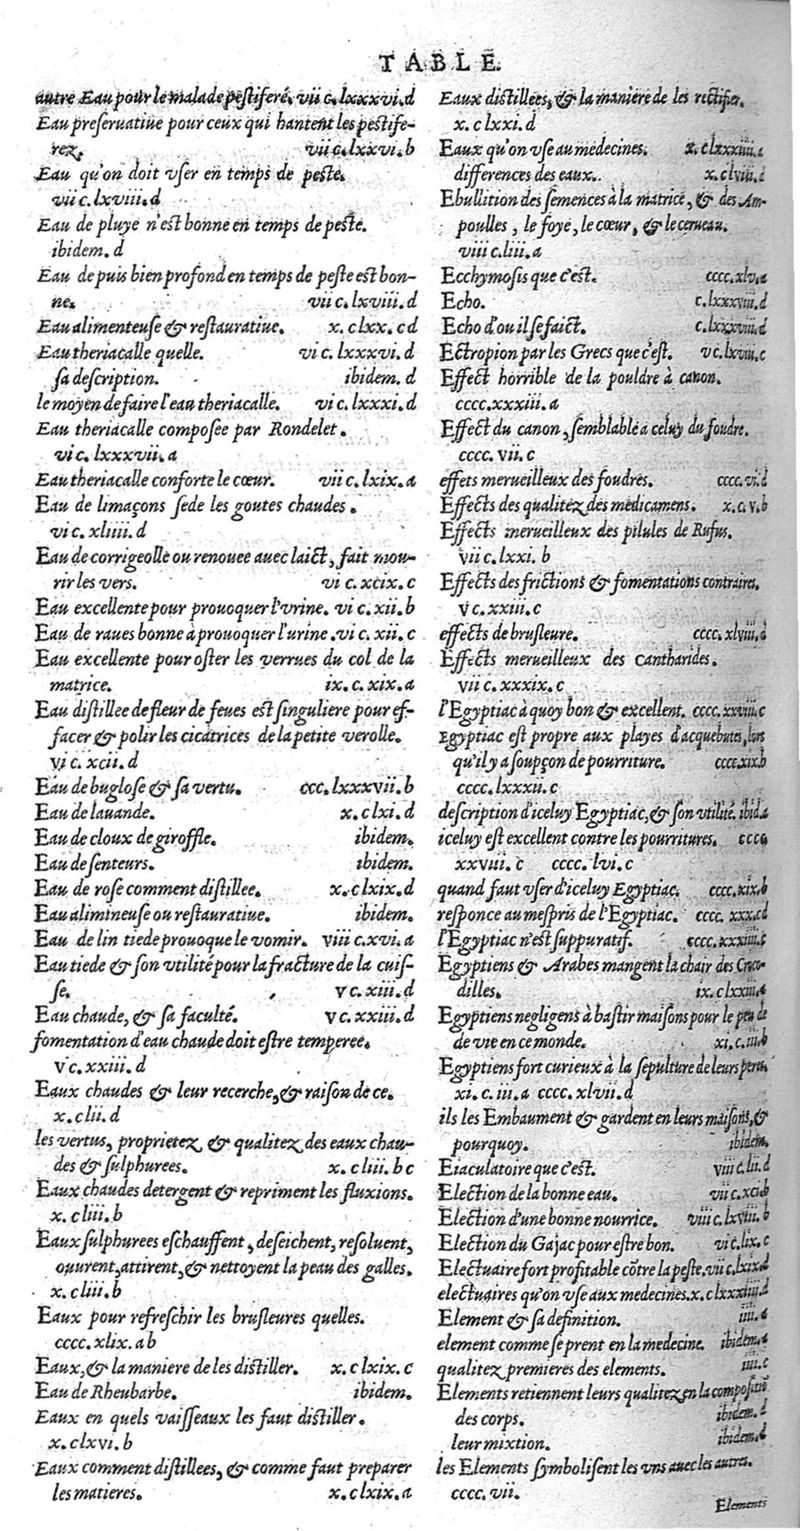 TABLE.
autre Eau pour le malade pestiferé. vii c.lxxxvi.d
Eau preseruatiue pour ceux qui hantent les pestife-
rez. vii c.lxxvi.b
Eau qu'on doit vser en temps de peste.
vii c.lxviii.d
Eau de pluye n'est bonne en temps de peste.
ibidem. d
Eau de puis bien profond en temps de peste est bon-
ne. vii c.lxviii.d
Eau alimenteuse & restauratiue. x. c lxx. c d
Eau theriacalle quelle. vi c. lxxxvi. d
sa description. ibidem. d
le moyen de faire l'eau theriacalle. vi c. lxxxi. d
Eau theriacalle composee par Rondelet.
vi c. lxxxvii. a
Eau theriacalle conforte le cœur. vii c. lxix. a
Eau de limaçons sede les goutes chaudes.
vi c. xliiii. d
Eau de corrigeolle ou renouee auec laict, fait mou-
rir les vers. vi c. xcix. c
Eau excellente pour prouoquer l'vrine. vi c. xii. b
Eau de raues bonne à prouoquer l'urine. vi c. xii. c
Eau excellente pour oster les verrues du col de la
matrice. ix. c. xix. a
Eau distillee de fleur de feues est singuliere pour ef-
facer & polir les cicatrices de la petite verolle.
vi c. xcii. d
Eau de buglose & sa vertu. ccc. lxxxvii. b
Eau de lauande. x. c lxi. d
Eau de cloux de giroffle. ibidem.
Eau de senteurs. ibidem.
Eau de rose comment distillee. x. c lxix. d
Eau alimineuse ou restauratiue. ibidem.
Eau de lin tiede prouoque le vomir. viii c. xvi. a
Eau tiede & son vtilité pour la fracture de la cuis-
se. v c. xiii. d
Eau chaude, & sa faculté. v c. xxiii. d
fomentation d'eau chaude doit estre temperee.
v c. xxiii. d
Eaux chaudes & leur recerche, & raison de ce.
x. clii. d
les vertus, proprietez & qualitez des eaux chau-
des & sulphurees. x. c liii. b c
Eaux chaudes detergent & repriment les fluxions.
x. cliii. b
Eaux sulphurees eschauffent, deseichent, resoluent,
ouurent, attirent, & nettoyent la peau des galles.
x. cliii. b
Eaux pour refreschir les brusleures quelles.
cccc. xlix. a b
Eaux, & la maniere de les distiller. x. c lxix. c
Eau de Rheubarbe. ibidem.
Eaux en quels vaisseaux les faut distiller.
x. clxvi. b
Eaux comment distillees, & comme faut preparer
les matieres. x. c lxix. a
Eaux distillees, & la maniere de les rectifier.
x. c lxxi. d
Eaux qu'on vse au medecines.
differences des eaux. x. c lviii.
Ebullition des semences à la matrice, & des Am-
poulles, le foye, le cœur, & le cerueau.
viii c. liii. a
Ecchymosis que c'est. cccc. xlv. a
Echo. c. lxxxviii. d
Echo d'ou il se faict. c. lxxxviii. d
Ectropion par les Grecs que c'est. v c. lxviii. c
Effect horrible de la pouldre à canon.
cccc. xxxiii. a
Effect du canon, semblable a celuy du foudre.
cccc. vii. c
effets merueilleux des foudres. cccc. vi. d
Effects des qualitez des medicamens. x. c. v. b
Effects merueilleux des pilules de Rufus.
vii c. lxxi. b
Effects des frictions & fomentations contraires.
v c. xxiii. c
effects de brusleure. cccc. xlviii. d
Effects merueilleux des Cantharides.
vii c. xxxix. c
l'Egyptiac à quoy bon & excellent. cccc. xxviii. c
Egyptiac est propre aux playes d'acquebutes, lors
qu'il y a soupçon de pourriture. cccc. xix. b
cccc. lxxxii. c
description d'iceluy Egyptiac, & son vtilité. ibid.
iceluy est excellent contre les pourritures. cccc
xxviii. c cccc. lvi. c
quand faut vser d'iceluy Egyptiac. cccc. xix. b
responce au mespris de l'Egyptiac. cccc. xxx. c d
l'Egyptiac n'est suppuratif. cccc. xxxiiii. c
Egyptiens & Arabes mangent la chair des Croco-
dilles. ix. c lxxiii. a
Egyptiens negligens à bastir maisons pour le peu de
de vie en ce monde. xi. c. iii. b
Egyptiens fort curieux à la sepulture de leurs
xi. c. iii. a cccc. xlvii. d
ils les Embaument & gardent en leurs maisons, &
pourquoy. ibidem.
Eiaculatoire que c'est. viii c. lii. d
Election de la bonne eau. vii c. xci. b
Election d'une bonne nourrice. viii c. lxviii. b
Election du Gajac pour estre bon. vi c. lix. c
Electuaire fort profitable cōtre la peste. vii c. lxix. d
electuaires qu'on vse aux medecines. x. c lxxxiiii. d
Element & sa definition. iiii. a
element comme se prent en la medecine. ibidem. a
qualitez premieres des elements. iiii. c
Elements retiennent leurs qualitez en la compositiō
des corps. ibidem. d
leur mixtion. ibidem. d
les Elements symbolisent les vns auec les autres.
cccc. vii.
Elements